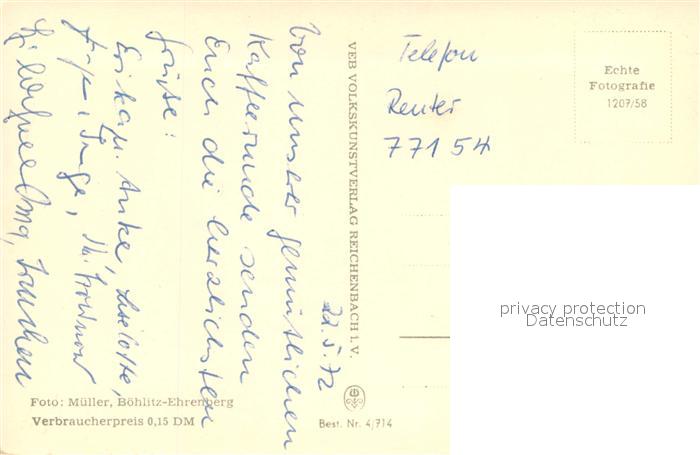 22.5.72
Von unserer gemütlichen
Kaffeerunde senden
Euch die herzlichsten
Grüße:
Erika, u. Anke, Liselotte,
Inge,
VEB VOLKSKUNSTVERLAG REICHENBACH I. V.
Telefon
Reuter
77154
Echte
Fotografie
1207/58
privacy protection
Datenschutz
Foto: Müller, Böhlitz-Ehrenberg
Verbraucherpreis 0,15 DM
Best. Nr. 4/714